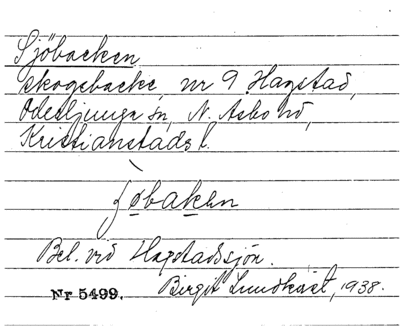 Sjöbacken
skogsbacke, nr 9 Hagstad,
Oderljunga sn, N. Åsbo hd,
Kristianstads l.
jøbaken
Bel. vid Hagstadssjön.
Nr 5499. Birgit Lundkvist, 1938.